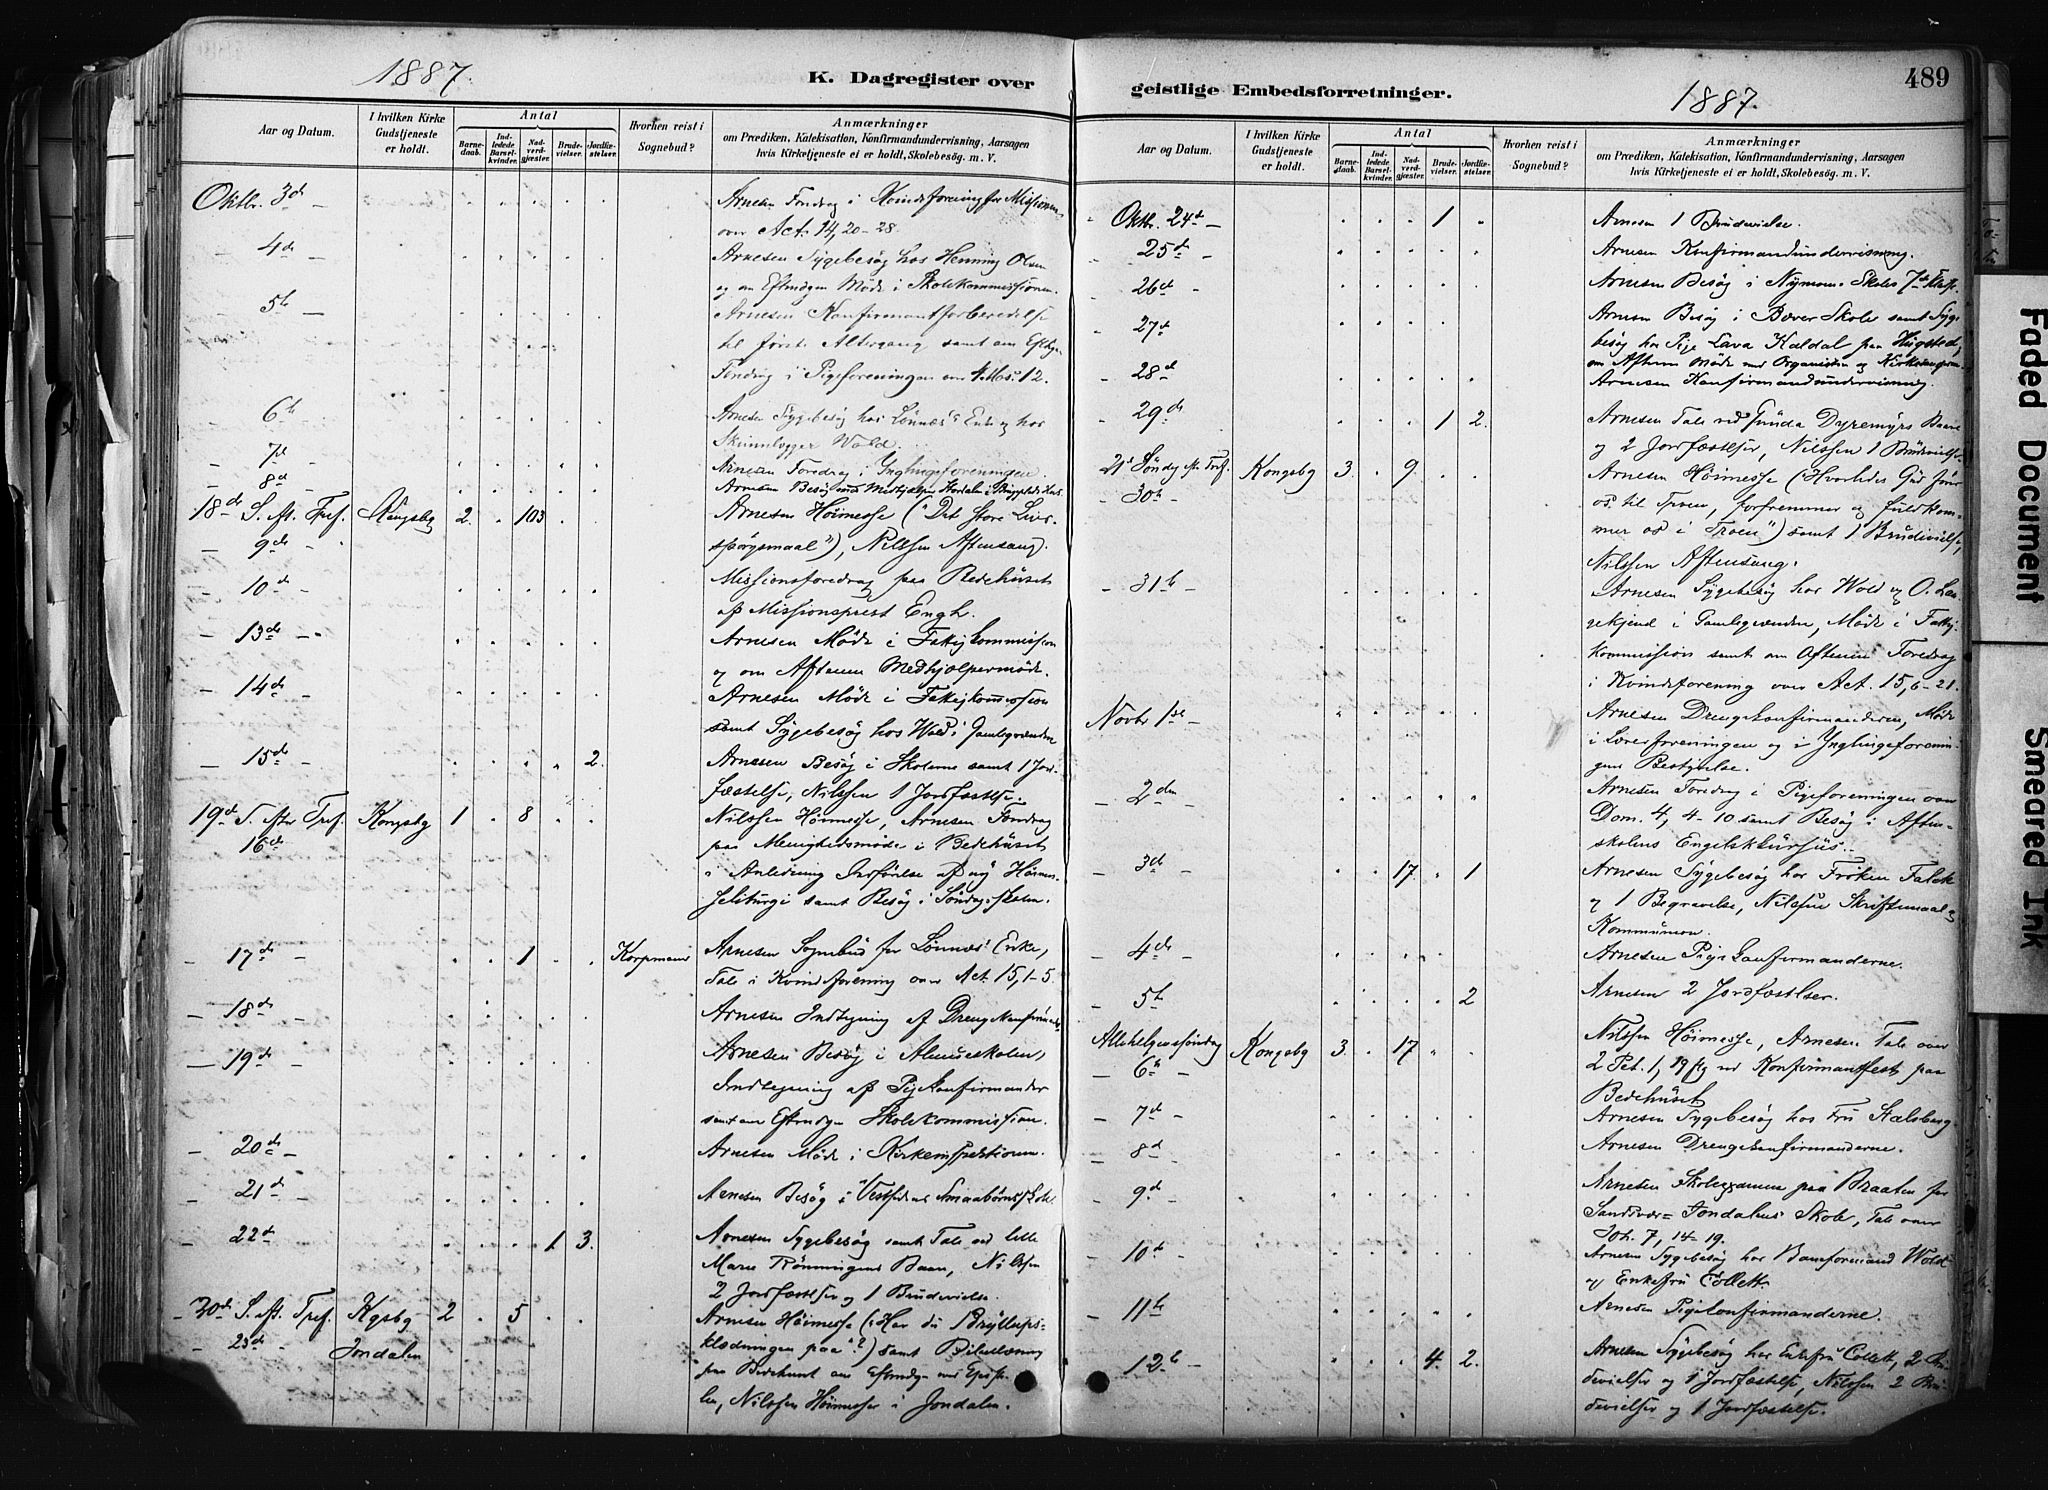 1887.
K. Dagregister over
Aar og Datum.
I hvilken Kirke Gudstjeneste er holdt.
Antal
Barnedaab.
Indledede Barselkvinder.
Nadverdgjæster.
Brudevielser.
Jordfæstelser.
Hvorhen reist i Sognebud?
Anmærkninger
om Prædiken, Katekisation, Konfirmandundervisning, Aarsagen
hvis Kirketjeneste ei er holdt, Skolebesøg. m. V.
Oktbr. 3d – Arnesen Foredrag i Kvindeforening for Missionen
over Act. 14, 20–28.
4de Arnesen Sygebesøg hos Henning Olsen
og om Eftmdgen Møde i Skolekommissionen.
5te – Arnesen Konfirmantforberedelse
til første Altergang samt om Eftmg.
Foredrag i Pigeforeningen over 4 Mos. 12.
6te – Arnesen Sygebesøg hos Lønnæs's Enke og hos
Wold.
– 7de – Arnesen Foredrag i Ynglingeforeningen
– 8de – Arnesen Besøg med Medhjælper
18de S. eft. Tref. Kongsbg 2. 103 Arnesen Høimesse ("Det store Livs-
– 9de – spørgsmaal"), Nilssen Aftensang.
10de Missionsforedrag paa Bedehuset
af Missionsprest Engh.
– 13de – Arnesen Møde i Fattigkommission
og om Aftenen Medhjælpermøde.
– 14de – Arnesen Møde i Fattigkommission
samt Sygebesøg hos Wold i Gamlegrænden
– 15de – 2. Arnesen Besøg i Skolerne samt 1 Jor-
fæstelse, Nilssen 1 Jordfæstelse.
19de S. efter Tref. Kongsbg 1 8 Nilssen Høimesse, Arnesen Foredrag
16de paa Menighedsmøde i Bedehuset
i Anledning Indførelse af ny Høimes-
seliturgi samt Besøg i Søndagsskolen.
– 17de – 1 Arnesen Sognebud for Lønnæs' Enke,
Tale i Kvindeforening over Act. 15, 1–5.
– 18de – Arnesen Indtegning af Drengekonfirmander
– 19de – Arnesen Besøg i Almueskolen,
Indtegning af Pigekonfirmander
samt om Eftmdgen Skolekommission.
– 20de – Arnesen Møde i Kirkeinspektionen.
– 21de – Arnesen Besøg i Vestsidens Smaabørnsskole
– 22de – 1 3. Arnesen Sygebesøg samt Tale ved lille
Marie Rønningens Baare, Nilssen
2 Jordfæstelser og 1 Brudevielse.
– 20de S. eft. Tref. Kgsbg 2 5 Arnesen Høimesse ("Har du Bryllups-
– 23de – Jondalen klædningen paa"?) samt Bibellæsning
paa Bedehuset om Eftmdgn
Nilssen Høimesse i Jondalen.
geistlige Embedsforretninger.
1887.
489
Aar og Datum.
I hvilken Kirke Gudstjeneste er holdt.
Antal
Barnedaab.
Indledede Barselkvinder.
Nadverdgjæster.
Brudevielser.
Jordfæstelser.
Hvorhen reist i Sognebud?
Anmærkninger
om Prædiken, Katekisation, Konfirmandundervisning, Aarsagen
hvis Kirketjeneste ei er holdt, Skolebesøg. m. V.
Oktbr. 24de – 1 Arnesen 1 Brudevielse.
– 25de Arnesen Konfirmandundervisning.
– 26de Arnesen Besøg i Nymoens Skoles 7de Klasse.
– 27de Arnesen Besøg i Bæver Skole samt Syge-
besøg hos Pige Lava Kaldal paa Hugsted,
om Aftenen Møde med Organisten og
– 28de Arnesen Konfirmandundervisning.
– 29de 1 2. Arnesen Tale ved Gunda Dyremyrs Baare
og 2 Jordfæstelser, Nilssen 1 Brudevielse
21de Søndg eft. Tref. Kongsbg 3. 9 Arnesen Høimesse (Hvorledes Gud fører
– 30te – os til Troen, forfremmer og fuldkom-
mer os i Troen") samt 1 Brudevielse,
Nilssen Aftensang.
– 31te – Arnesen Sygebesøg hos Wold og
i Gamlegrænden, Møde i Fattig-
kommission samt om Aftenen Foredrag
i Kvindeforening over Act. 15, 6–21.
Novbr 1ste – Arnesen Drengekonfirmanderne, Møde
i Lærerforeningen og i Ynglingeforenin-
gens Bestyrelse.
– 2den – Arnesen Foredrag i Pigeforeningen over
Dom. 4, 4–10 samt Besøg i Aften-
skolens Engelskkursus.
– 3de – 17 1 Arnesen Sygebesøg hos Frøken Falck
og 1 Begravelse, Nilssen Skriftemaal og
Kommunion.
– 4de – Arnesen Pigekonfirmanderne.
– 5te – 2 Arnesen 2 Jordfæstelser.
Allehelgenssøndag Kongsbg 3. 17 Nilssen Høimesse, Arnesen Tale over
– 6te – 2 Pet. 1, 19 flg ved Konfirmantfest paa
Bedehuset
– 7de – Arnesen Sygebesøg hos Fru Stalsberg
– 8de – Arnesen Drengekonfirmanderne.
– 9de – Arnesen Skoleexamen paa Braaten for
Sandsvær-Jondalens Skole, Tale over
Joh. 7, 14–19.
– 10de – Arnesen Sygebesøg hos Baneformand Wold
og Enkefru Collett.
– 11te – Arnesen Pigekonfirmanderne.
– 12te – 4. 2. Arnesen Sygebesøg hos Enkefru Collett, 2 Bru-
devielser og 1 Jordfæstelse, Nilssen 2 Bru-
devielser og 1 Jordfæstelse.
Faded Document
Smeared Ink